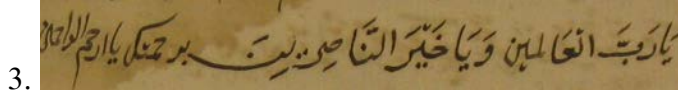 يَارَبَّ العَالمين وَيَا خَيْرَ النَّاصِرِينَ برحمتك ياارحم الراحمين
3.